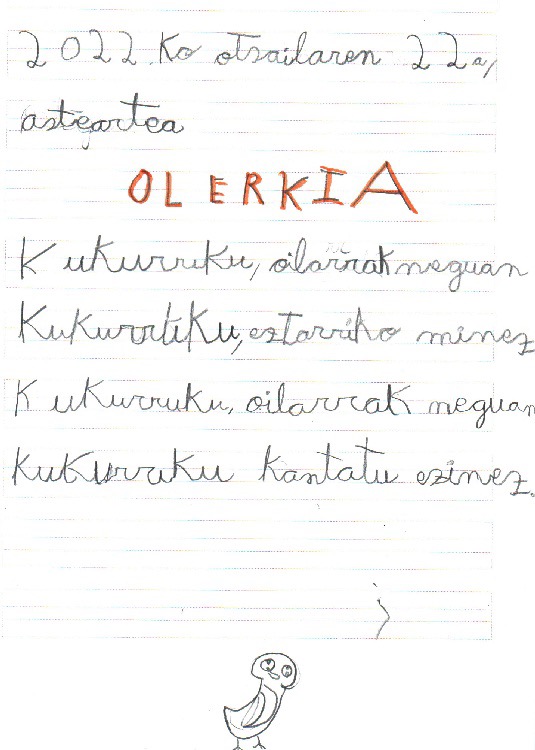 2022.ko otsailaren 22a,
asteartea
OLERKIA
Kukurruku, oilarrak neguan
Kukurruku, eztarriko minez
Kukurruku, oilarrak neguan
Kukurruku kantatu ezinez.